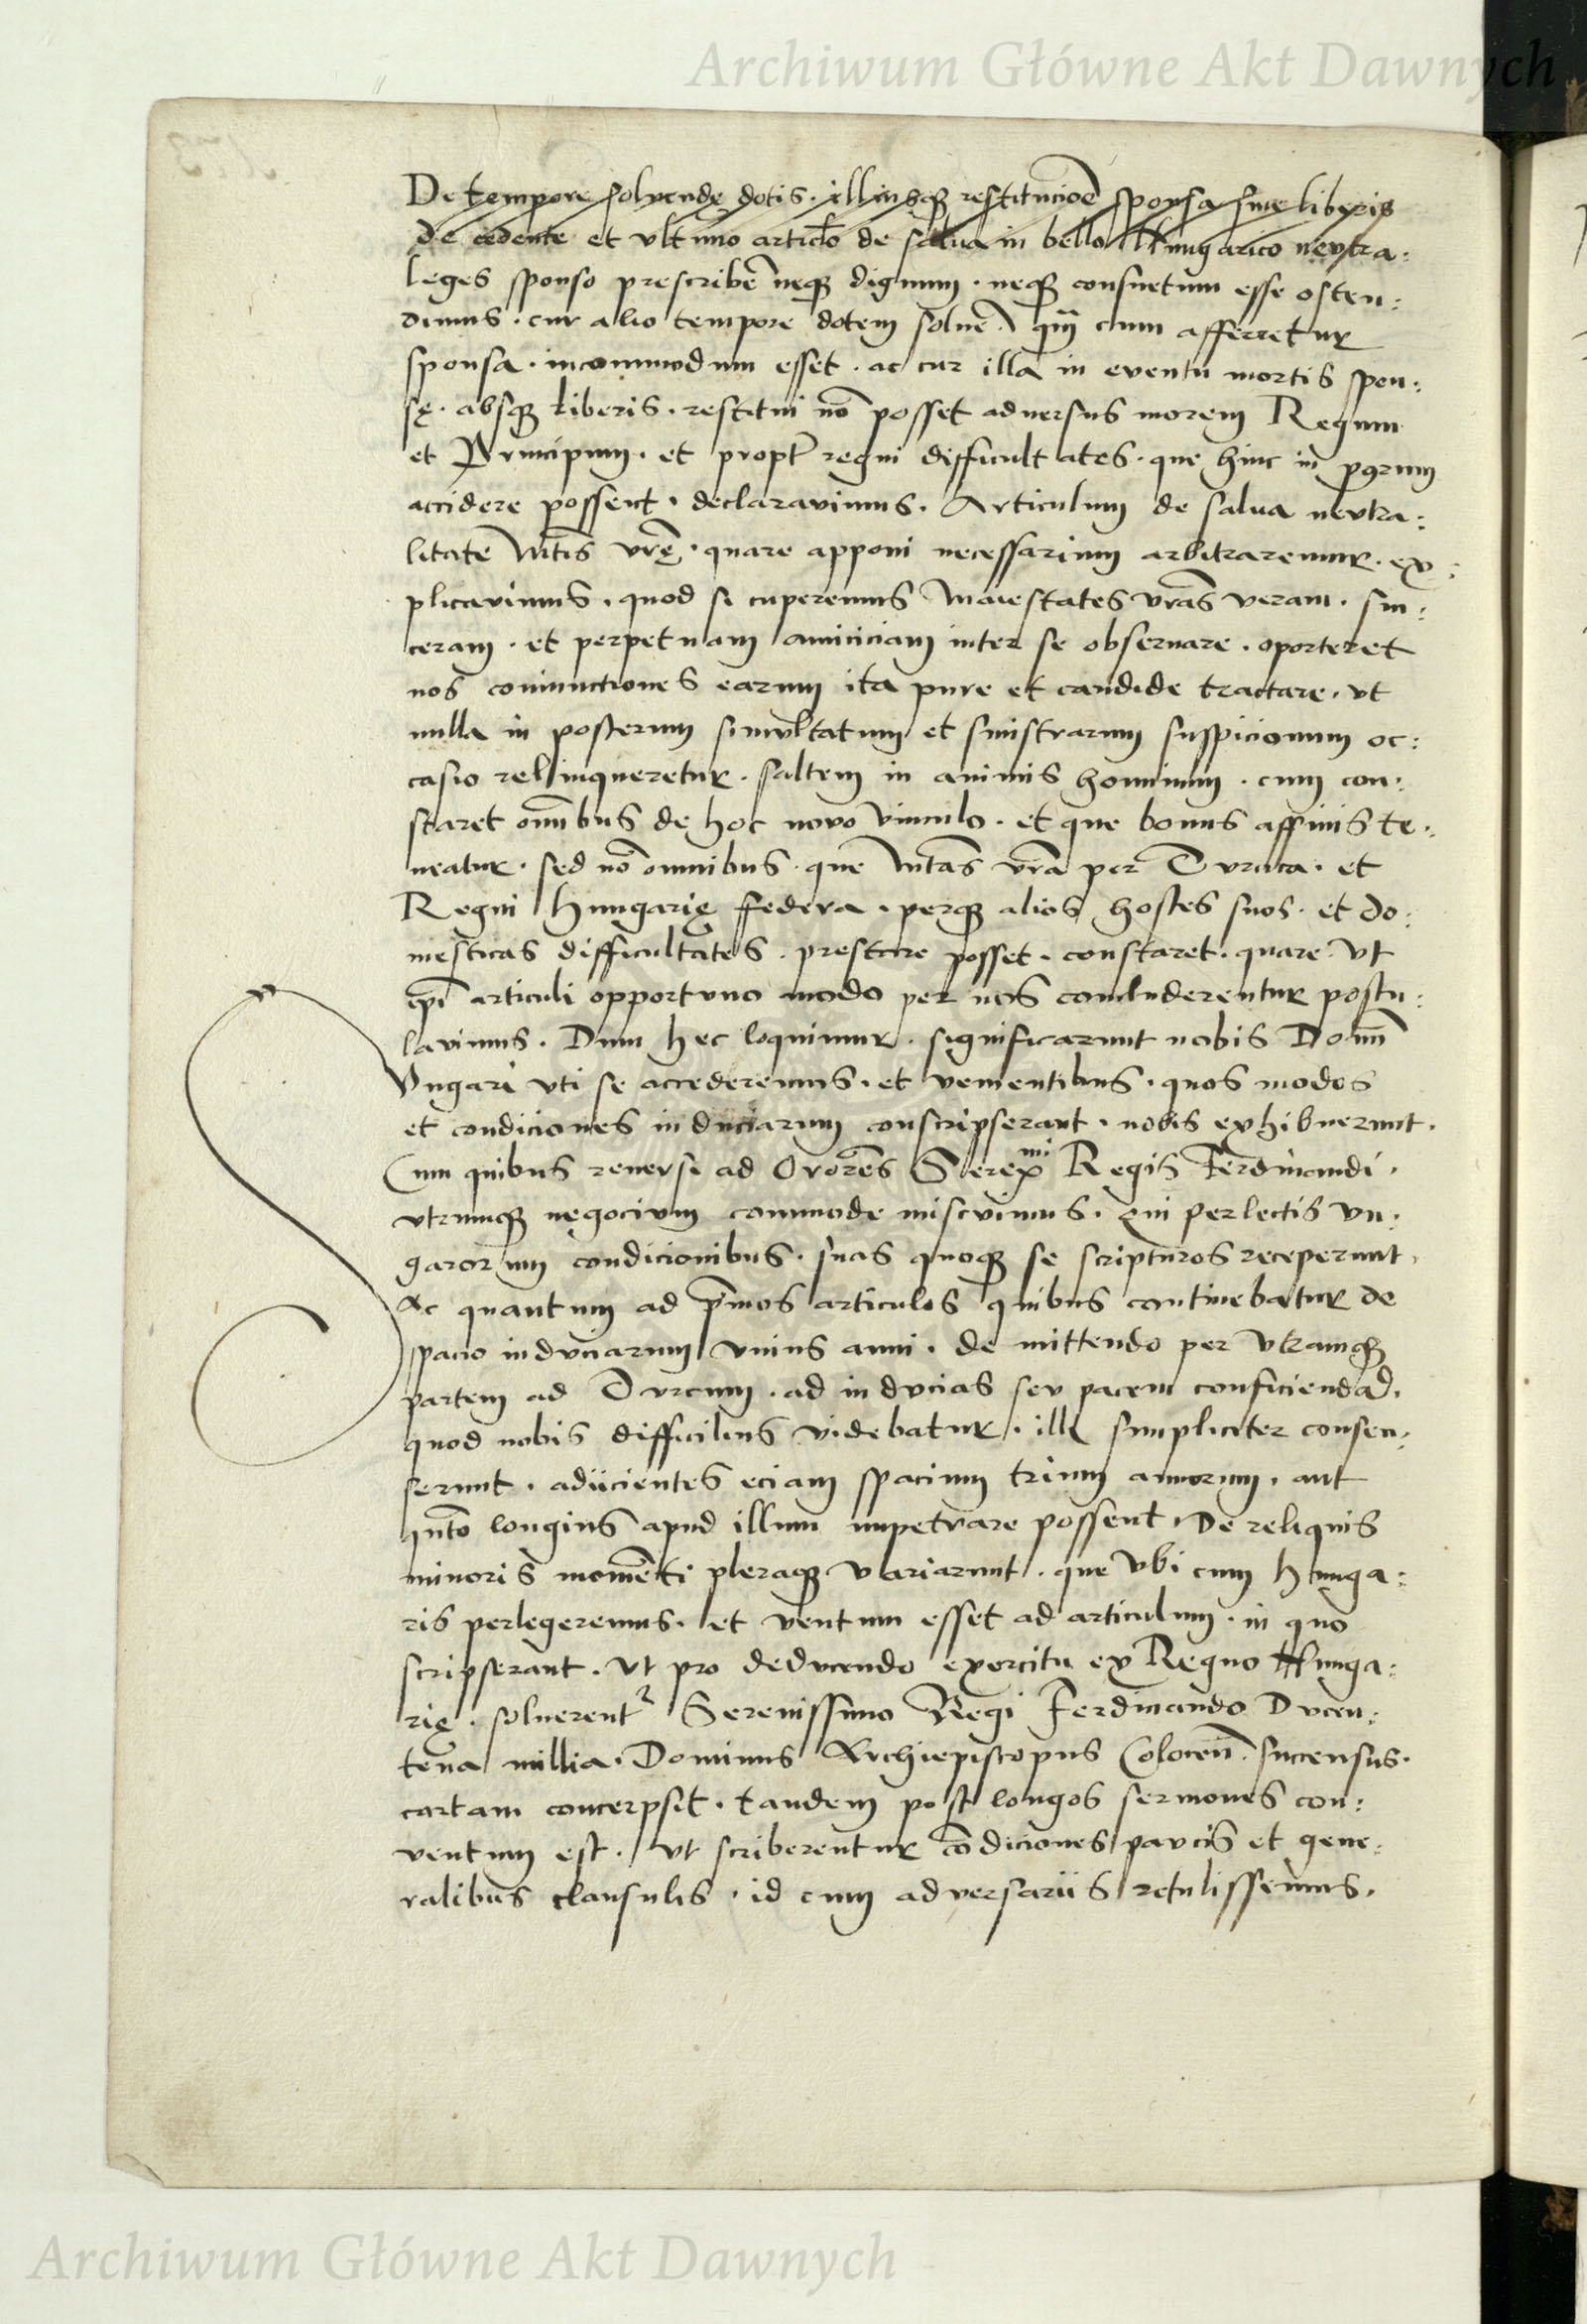 Archiwum Główne Akt Dawnych
De tempore solvendę dotis. illiusq3 restitucioẽ sponsa sine liberis
de cedente et vltimo articl̃o de salua in bello Hungarico nevtra:
leges sponso prescribẽ neq3 dignum. neq3 consuetum esse osten:
dimus. cur alio tempore dotem soluẽ. qm̃ cum afferretur
sponsa. incommodum esset. ac cur illa in eventu mortis spon:
sę. absq3 liberis. restitui nõ posset adversus morem Regum
et Principum. et propt̃ regni difficultates. que hinc in
accidere possent. declaravimus. Articulum de salua nevtra:
litate Mt̃is vr̃ę. quare apponi necessarium arbitraremur. ex:
plicavimus. quod si cuperemus Maiestates vr̃as veram. sin:
ceram. et perpetuam amiciciam inter se observare. oporteret
nos coniunctiones earum ita pure et candide tractare. vt
nulla in posterum simultatum et sinistrarum suspicionum oc:
casio relinqueretur. saltem in animis hominum. cum con:
staret omñibus de hoc novo vinculo. et que bonus affinis te:
neatur. sed nõ omnibus. que Mt̃as vr̃a per Turcica. et
Regni Hungarię federa. perq3 alios hostes suos. et do:
mesticas difficultates. prestare posset. constaret. quare vt
articuli opportuno modo per nos concluderentur postu:
lavimus. Dum hec loquimur. significarunt nobis Domĩ
Vngari vti se accederemus. et venientibus. quos modos
et condiciones induciarum conscripserant. nobis exhibuerunt.
Cum quibus reversi ad Orõres Serex̃mi Regis Ferdinandi.
vtrumq3 negocium commode miscuimus. qui perlectis vn:
garorum condicionibus. suas quoq3 se scripturos receperunt.
Ac quantum ad pr̃mos articulos quibus continebatur de
spacio induciarum vnius anni. de mittendo per vtramq3
partem ad Turcum. ad inducias sev pacem conficiendã.
quod nobis difficilius videbatur. illi simpliciter consen:
serunt. adiicientes eciam spacium trium annorum. aut
longius apud illum impetrare possent. De reliquis
minoris momẽti pleraq3 variarunt. que vbi cum Hunga:
ris perlegeremus. et ventum esset ad articulum. in quo
scripserant. vt pro deducendo exercitu ex Regno Hunga:
rię. solverent2 Serenissimo Regi Ferdinando Ducen:
tena millia. Dominus Archiepiscopus Coloceñ. succensus.
cartam concerpsit. tandem post longos sermones con:
ventum est. vt scriberentur cõdiciones paucis et gene:
ralibus clausulis. id cum adversariis retulissemus.
Archiwum Główne Akt Dawnych